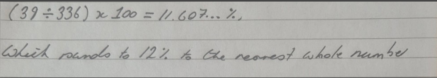 (39÷336) x 100 = 11.607...%,
Which rounds to 12% to the nearest whole number